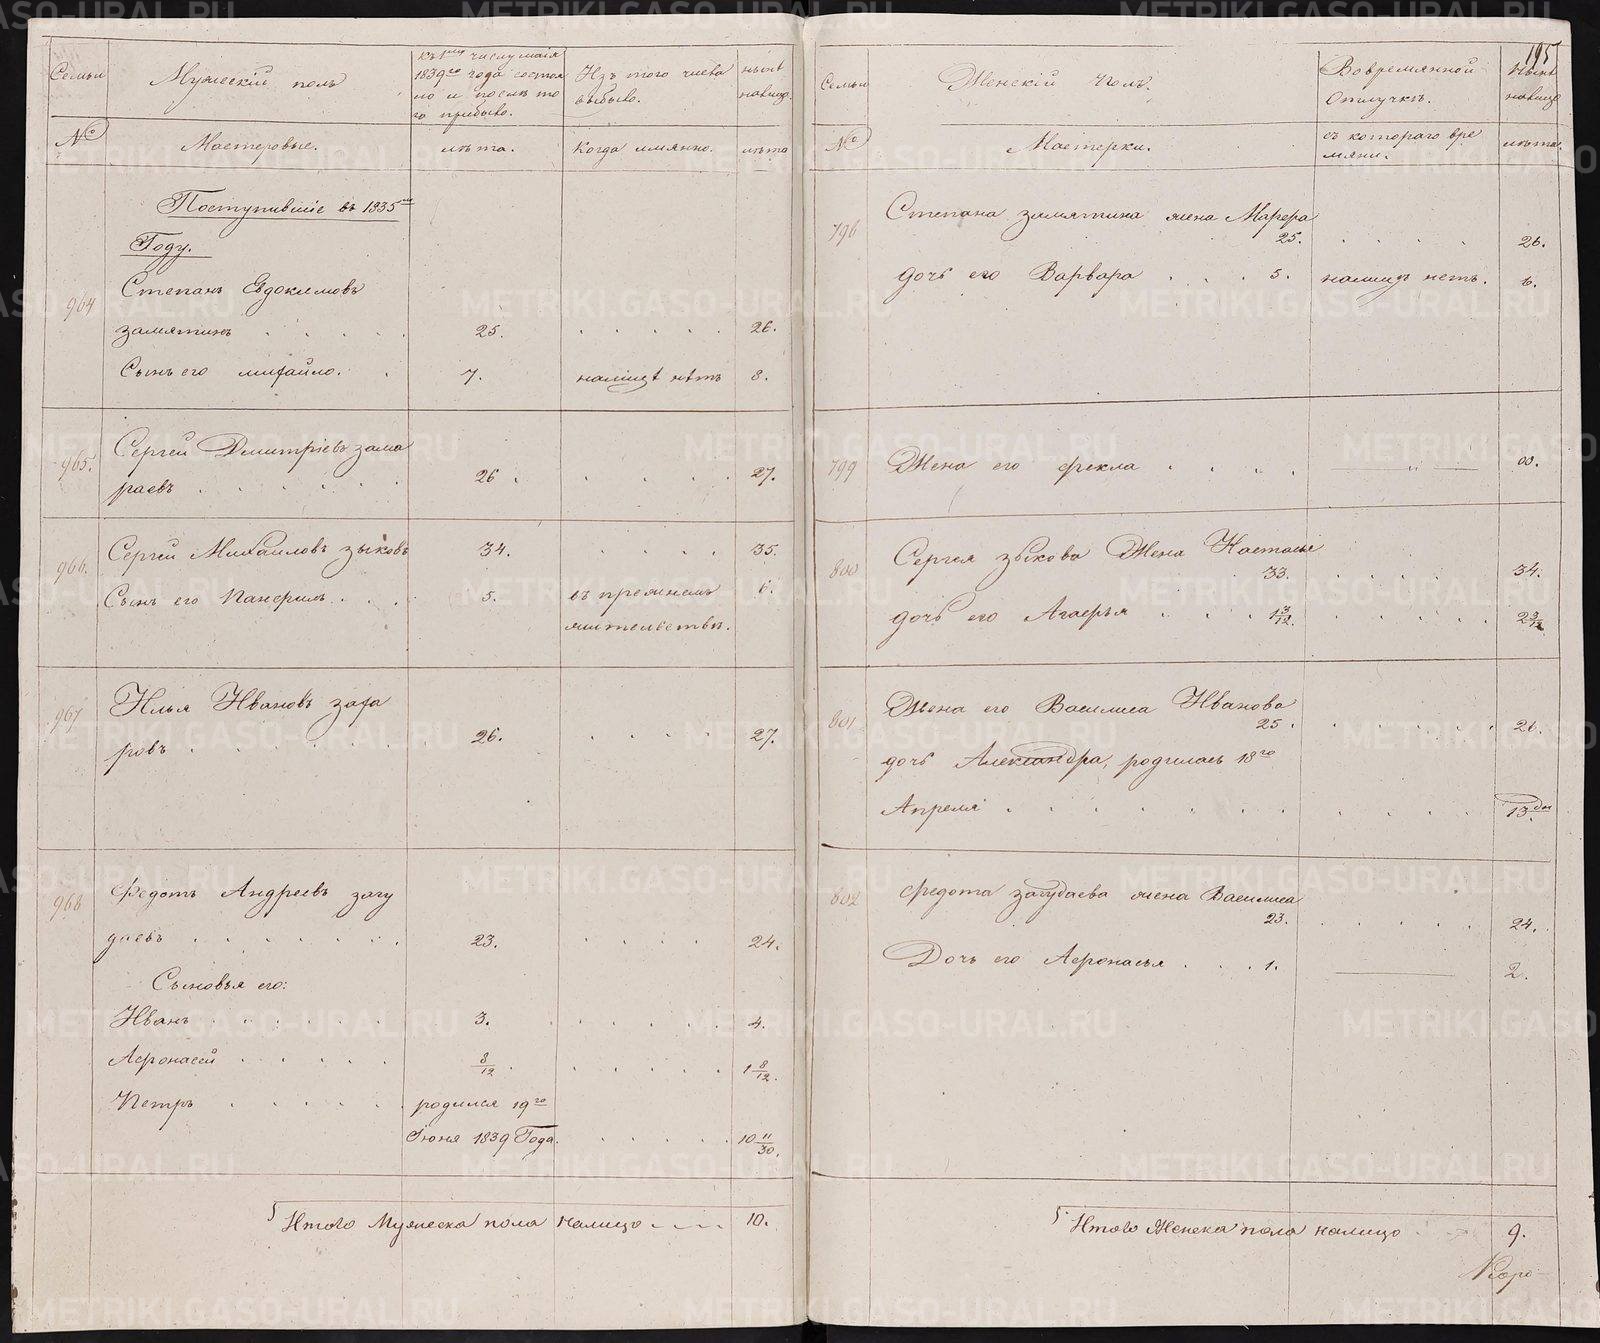 Семьи
Мужескій полъ
къ 1му числу маія
1839го года состоя
ло и послѣ то
го прибыло.
Изъ того числа
выбыло.
нынѣ
налицо.
№
Мастеровые.
лѣта.
Когда имянно.
лѣта
Поступившіе въ 1835м
Году.
964
Степанъ Евдокимовъ
замятинъ . . . . .
25.
. . . . .
26.
Сынъ его михайло. .
7.
налицѣ нѣтъ
8.
965.
Сергей Дмитріевъ зама
раевъ . . . . . .
26.
. . . . .
27.
966.
Сергей Михайловъ зыковъ
34.
. . . .
35.
Сынъ его Панкрилъ . . .
5.
въ прежнемъ
6.
жительствѣ.
967
Илья Ивановъ заха
ровъ . . . . . . .
26.
. . . .
27.
968
Федотъ Андреевъ загу
даевъ . . . . . . .
23.
. . . .
24.
Сыновья его:
Иванъ . . . . . .
3.
. . . . .
4.
Афонасей . . . . .
8/12.
. . . . .
1 8/12.
Петръ . . . . .
родился 19го
Іюня 1839 Года.
. . . .
10 11/30.
5 Итого Мужеска пола налицо . . . .
10.
195
Семьи
Женскій Полъ.
Вовремянной
Отлучкѣ.
Нынѣ
налицо
№
Мастерки.
съ котораго вре
мяни.
лѣта.
798
Степана замятина жена Марфа
25.
. . . .
26.
дочь его Варвара . . .
5.
налицѣ нетъ.
6.
799
Жена его фекла . . . .
00.
800
Сергея зыкова Жена Настасья
33.
. . . .
34.
дочь его Агафья . . .
1 3/12.
. . . . .
2 3/12
801
Жена его Василиса Иванова
25.
. . . . .
26.
дочь Александра, родилась 18го
Апреля . . . . . . .
. . . . .
13 дн.
802
Федота загудаева жена Василиса
23.
. . . . .
24.
Дочь его Афонасья . . .
1.
2.
5. Итого Женска пола налицо
9.
METRIKI.GASO-URAL.RU